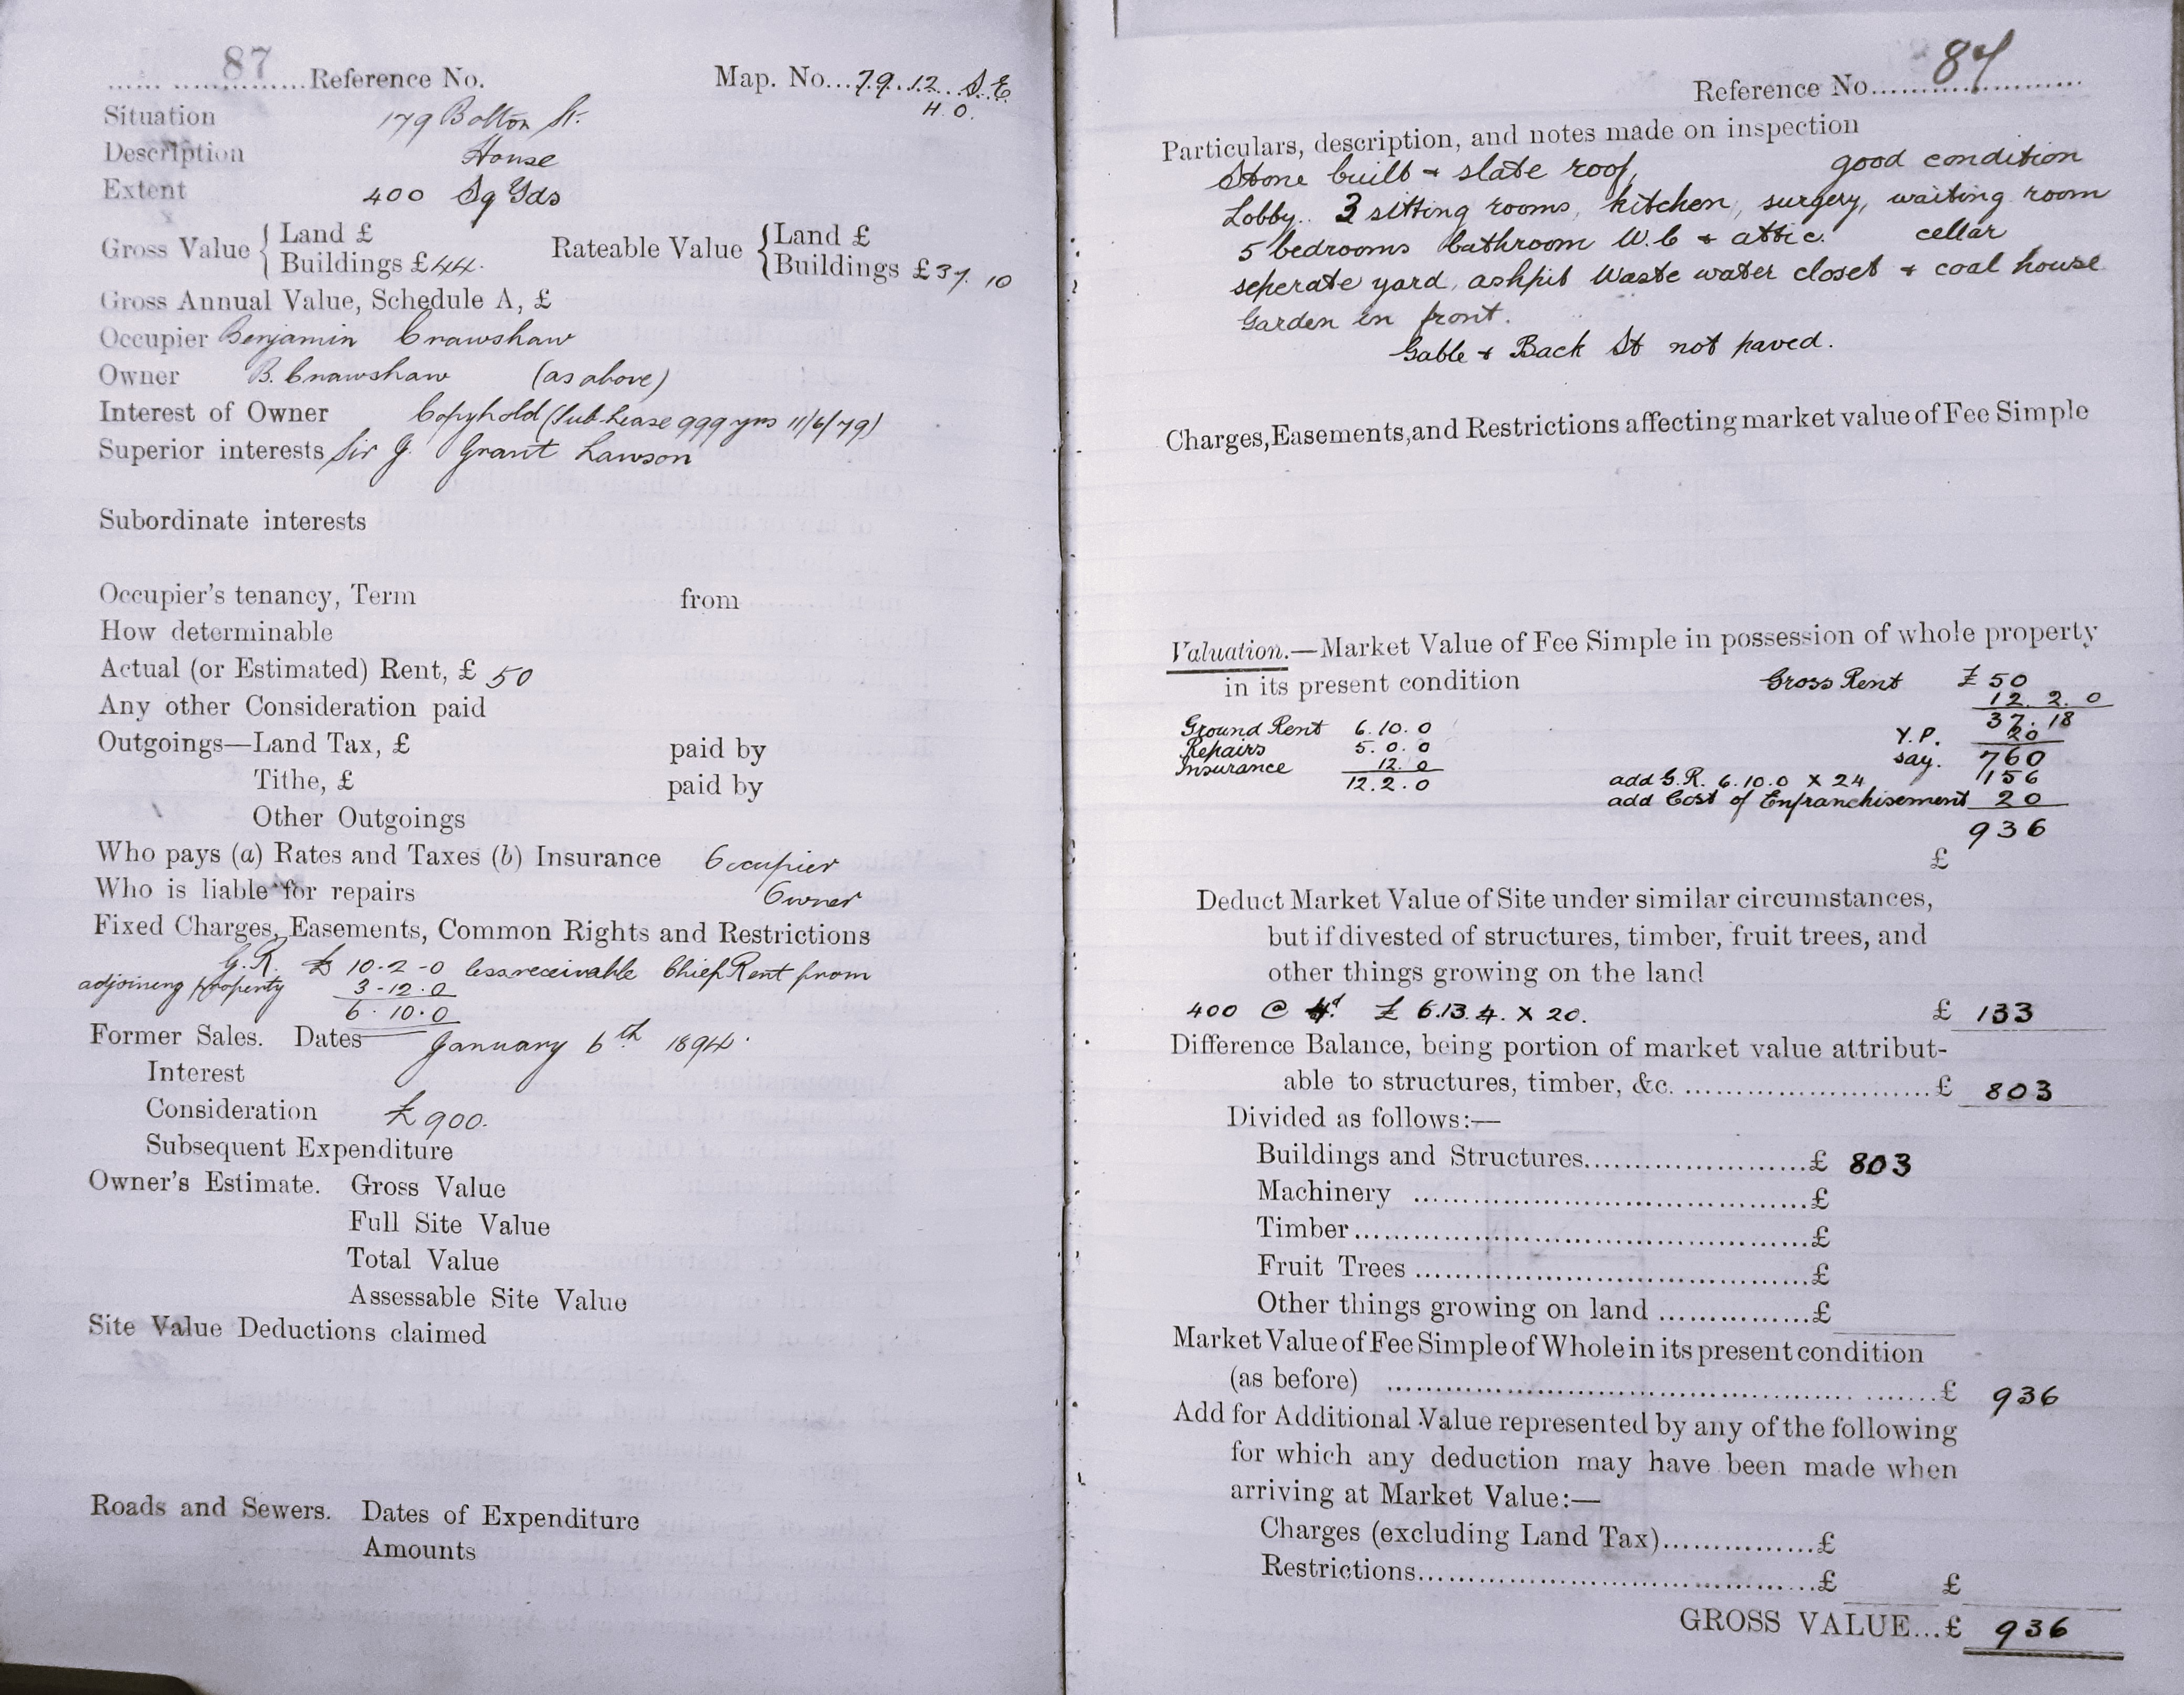 87 Reference No. Map. No...79.12 S.E
H.O.
Situation 179 Bolton St.
Description House
Extent 400 Sq Yds
Gross Value { Land £ Rateable Value { Land £
Buildings £44. Buildings £37.10
Gross Annual Value, Schedule A, £
Occupier Benjamin Crawshaw
Owner B. Crawshaw (as above)
Interest of Owner Copyhold (Sub Lease 999 yrs 11/6/79)
Superior interests Sir J. Grant Lawson
Subordinate interests
Occupier's tenancy, Term from
How determinable
Actual (or Estimated) Rent, £ 50
Any other Consideration paid
Outgoings—Land Tax, £ paid by
Tithe, £ paid by
Other Outgoings
Who pays (a) Rates and Taxes (b) Insurance Occupier
Who is liable for repairs Owner
Fixed Charges, Easements, Common Rights and Restrictions
G.R. £ 10-2-0 less receivable Chief Rent from
adjoining property 3-12.0
6.10.0
Former Sales. Dates January 6th 1894.
Interest
Consideration £900.
Subsequent Expenditure
Owner's Estimate. Gross Value
Full Site Value
Total Value
Assessable Site Value
Site Value Deductions claimed
Roads and Sewers. Dates of Expenditure
Amounts
Reference No. 87
Particulars, description, and notes made on inspection
Stone built + slate roof, good condition
Lobby.. 3 sitting rooms, kitchen, surgery, waiting room
5 bedrooms bathroom W.C + attic. cellar
seperate yard, ashpit Waste water closet + coal house
Garden in front.
Gable + Back St not paved.
Charges, Easements, and Restrictions affecting market value of Fee Simple
Valuation.—Market Value of Fee Simple in possession of whole property
in its present condition Gross Rent £ 50
12.2.0
Ground Rent 6.10.0 37.18
Repairs 5.0.0 Y.P. 20
Insurance 12.0 say. 760
12.2.0 add G.R. 6.10.0 x 24 156
add Cost of Enfranchisement 20
936
£
Deduct Market Value of Site under similar circumstances,
but if divested of structures, timber, fruit trees, and
other things growing on the land
400 @ 4d £ 6.13.4. x 20. £ 133
Difference Balance, being portion of market value attribut-
able to structures, timber, &c. £ 803
Divided as follows:—
Buildings and Structures £ 803
Machinery £
Timber £
Fruit Trees £
Other things growing on land £
Market Value of Fee Simple of Whole in its present condition
(as before) £ 936
Add for Additional Value represented by any of the following
for which any deduction may have been made when
arriving at Market Value:—
Charges (excluding Land Tax) £
Restrictions £ £
GROSS VALUE...£ 936